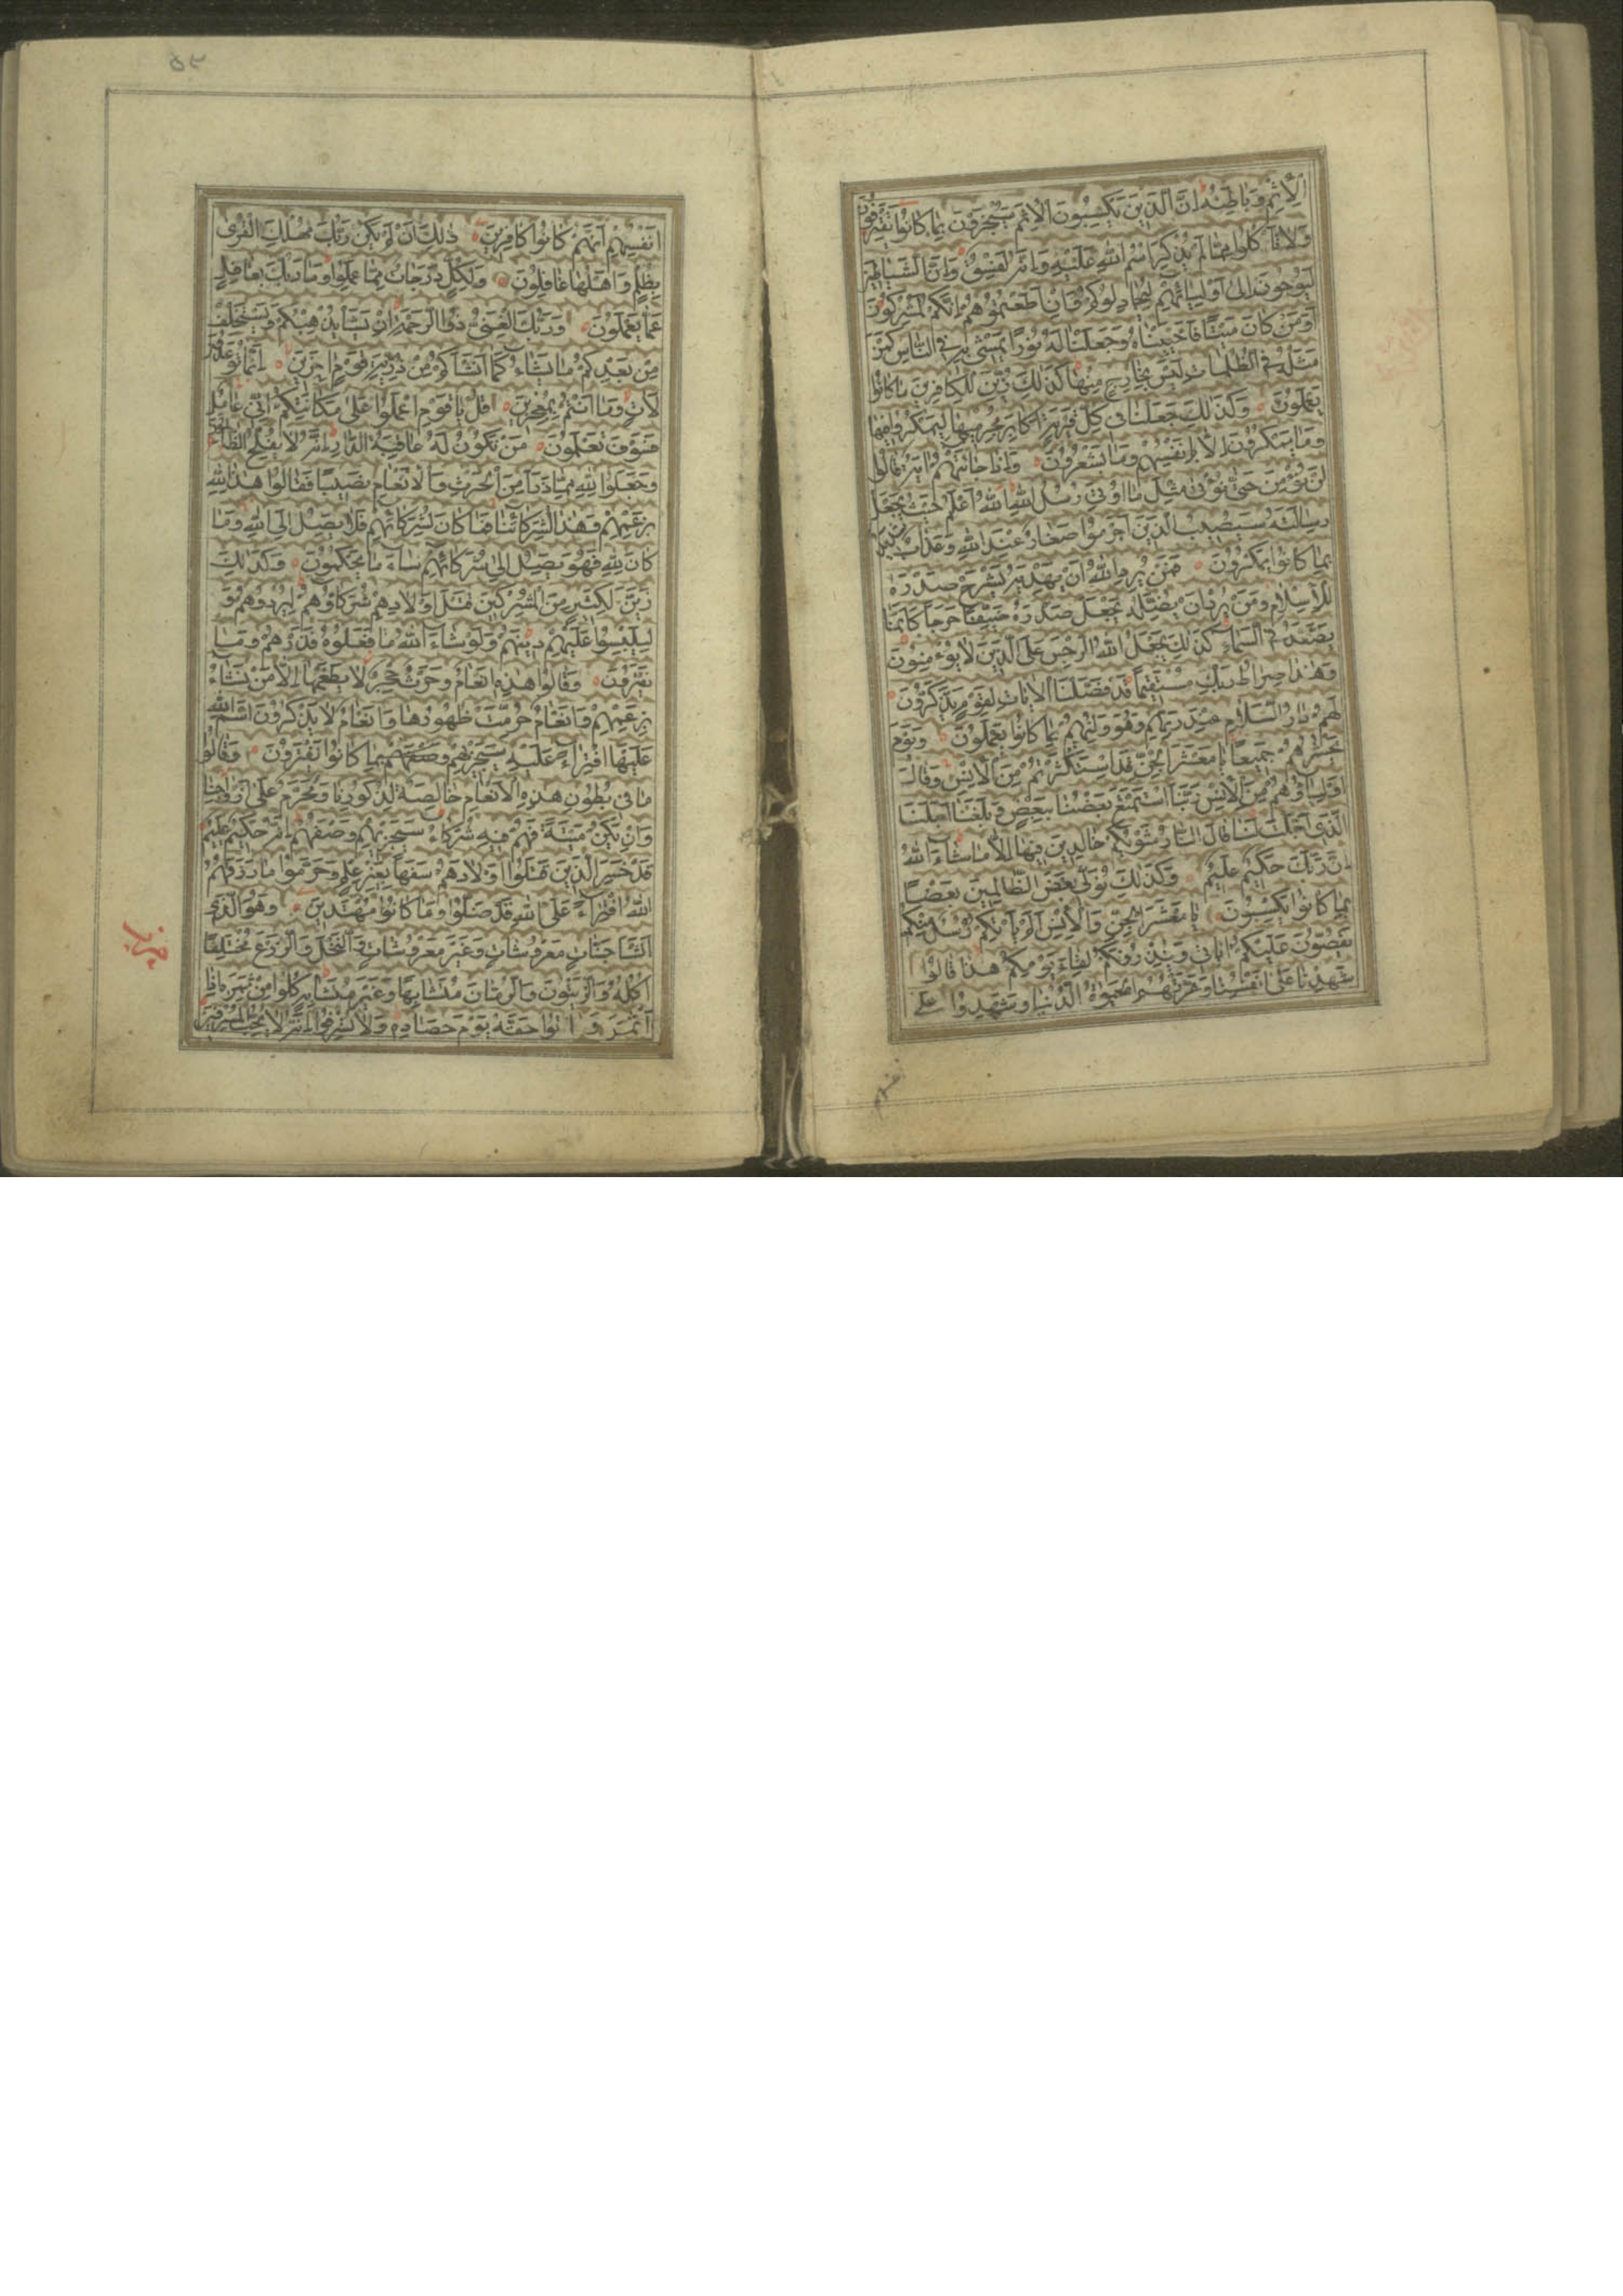 الْاِثْمِ وَبَاطِنَهُ اِنَّ الَّذِينَ يَكْسِبُونَ الْاِثْمَ سَيُجْزَوْنَ بِمَا كَانُوا يَقْتَرِفُونَ
وَلَا تَأْكُلُوا مِمَّا لَمْ يُذْكَرِ اسْمُ اللهِ عَلَيْهِ وَاِنَّهُ لَفِسْقٌ وَاِنَّ الشَّيَاطِينَ
لَيُوحُونَ اِلٰى اَوْلِيَائِهِمْ لِيُجَادِلُوكُمْ وَاِنْ اَطَعْتُمُوهُمْ اِنَّكُمْ لَمُشْرِكُونَ
اَوَمَنْ كَانَ مَيْتًا فَاَحْيَيْنَاهُ وَجَعَلْنَا لَهُ نُورًا يَمْشِي بِهِ فِي النَّاسِ كَمَنْ
مَثَلُهُ فِي الظُّلُمَاتِ لَيْسَ بِخَارِجٍ مِنْهَا كَذٰلِكَ زُيِّنَ لِلْكَافِرِينَ مَا كَانُوا
يَعْمَلُونَ وَكَذٰلِكَ جَعَلْنَا فِي كُلِّ قَرْيَةٍ اَكَابِرَ مُجْرِمِيهَا لِيَمْكُرُوا فِيهَا
وَمَا يَمْكُرُونَ اِلَّا بِاَنْفُسِهِمْ وَمَا يَشْعُرُونَ وَاِذَا جَاءَتْهُمْ اٰيَةٌ قَالُوا
لَنْ نُؤْمِنَ حَتّٰى نُؤْتٰى مِثْلَ مَا اُوتِيَ رُسُلُ اللهِ اَللهُ اَعْلَمُ حَيْثُ يَجْعَلُ
رِسَالَتَهُ سَيُصِيبُ الَّذِينَ اَجْرَمُوا صَغَارٌ عِنْدَ اللهِ وَعَذَابٌ شَدِيدٌ
بِمَا كَانُوا يَمْكُرُونَ فَمَنْ يُرِدِ اللهُ اَنْ يَهْدِيَهُ يَشْرَحْ صَدْرَهُ
لِلْاِسْلَامِ وَمَنْ يُرِدْ اَنْ يُضِلَّهُ يَجْعَلْ صَدْرَهُ ضَيِّقًا حَرَجًا كَاَنَّمَا
يَصَّعَّدُ فِي السَّمَاءِ كَذٰلِكَ يَجْعَلُ اللهُ الرِّجْسَ عَلَى الَّذِينَ لَا يُؤْمِنُونَ
وَهٰذَا صِرَاطُ رَبِّكَ مُسْتَقِيمًا قَدْ فَصَّلْنَا الْاٰيَاتِ لِقَوْمٍ يَذَّكَّرُونَ
لَهُمْ دَارُ السَّلَامِ عِنْدَ رَبِّهِمْ وَهُوَ وَلِيُّهُمْ بِمَا كَانُوا يَعْمَلُونَ وَيَوْمَ
يَحْشُرُهُمْ جَمِيعًا يَا مَعْشَرَ الْجِنِّ قَدِ اسْتَكْثَرْتُمْ مِنَ الْاِنْسِ وَقَالَ
اَوْلِيَاؤُهُمْ مِنَ الْاِنْسِ رَبَّنَا اسْتَمْتَعَ بَعْضُنَا بِبَعْضٍ وَبَلَغْنَا اَجَلَنَا
الَّذِي اَجَّلْتَ لَنَا قَالَ النَّارُ مَثْوٰيكُمْ خَالِدِينَ فِيهَا اِلَّا مَا شَاءَ اللهُ
اِنَّ رَبَّكَ حَكِيمٌ عَلِيمٌ وَكَذٰلِكَ نُوَلِّي بَعْضَ الظَّالِمِينَ بَعْضًا
بِمَا كَانُوا يَكْسِبُونَ يَا مَعْشَرَ الْجِنِّ وَالْاِنْسِ اَلَمْ يَأْتِكُمْ رُسُلٌ مِنْكُمْ
يَقُصُّونَ عَلَيْكُمْ اٰيَاتِي وَيُنْذِرُونَكُمْ لِقَاءَ يَوْمِكُمْ هٰذَا قَالُوا
شَهِدْنَا عَلٰى اَنْفُسِنَا وَغَرَّتْهُمُ الْحَيٰوةُ الدُّنْيَا وَشَهِدُوا عَلٰى
انفسهم
٥٢
اَنْفُسِهِمْ اَنَّهُمْ كَانُوا كَافِرِينَ ذٰلِكَ اَنْ لَمْ يَكُنْ رَبُّكَ مُهْلِكَ الْقُرٰى
بِظُلْمٍ وَاَهْلُهَا غَافِلُونَ وَلِكُلٍّ دَرَجَاتٌ مِمَّا عَمِلُوا وَمَا رَبُّكَ بِغَافِلٍ
عَمَّا يَعْمَلُونَ وَرَبُّكَ الْغَنِيُّ ذُو الرَّحْمَةِ اِنْ يَشَأْ يُذْهِبْكُمْ وَيَسْتَخْلِفْ
مِنْ بَعْدِكُمْ مَا يَشَاءُ كَمَا اَنْشَاَكُمْ مِنْ ذُرِّيَّةِ قَوْمٍ اٰخَرِينَ اِنَّمَا تُوعَدُونَ
لَاٰتٍ وَمَا اَنْتُمْ بِمُعْجِزِينَ قُلْ يَا قَوْمِ اعْمَلُوا عَلٰى مَكَانَتِكُمْ اِنِّي عَامِلٌ
فَسَوْفَ تَعْلَمُونَ مَنْ تَكُونُ لَهُ عَاقِبَةُ الدَّارِ اِنَّهُ لَا يُفْلِحُ الظَّالِمُونَ
وَجَعَلُوا لِلّٰهِ مِمَّا ذَرَاَ مِنَ الْحَرْثِ وَالْاَنْعَامِ نَصِيبًا فَقَالُوا هٰذَا لِلّٰهِ
بِزَعْمِهِمْ وَهٰذَا لِشُرَكَائِنَا فَمَا كَانَ لِشُرَكَائِهِمْ فَلَا يَصِلُ اِلَى اللهِ وَمَا
كَانَ لِلّٰهِ فَهُوَ يَصِلُ اِلٰى شُرَكَائِهِمْ سَاءَ مَا يَحْكُمُونَ وَكَذٰلِكَ
زَيَّنَ لِكَثِيرٍ مِنَ الْمُشْرِكِينَ قَتْلَ اَوْلَادِهِمْ شُرَكَاؤُهُمْ لِيُرْدُوهُمْ وَ
لِيَلْبِسُوا عَلَيْهِمْ دِينَهُمْ وَلَوْ شَاءَ اللهُ مَا فَعَلُوهُ فَذَرْهُمْ وَمَا
يَفْتَرُونَ وَقَالُوا هٰذِهِ اَنْعَامٌ وَحَرْثٌ حِجْرٌ لَا يَطْعَمُهَا اِلَّا مَنْ نَشَاءُ
بِزَعْمِهِمْ وَاَنْعَامٌ حُرِّمَتْ ظُهُورُهَا وَاَنْعَامٌ لَا يَذْكُرُونَ اسْمَ اللهِ
عَلَيْهَا افْتِرَاءً عَلَيْهِ سَيَجْزِيهِمْ بِمَا كَانُوا يَفْتَرُونَ وَقَالُوا
مَا فِي بُطُونِ هٰذِهِ الْاَنْعَامِ خَالِصَةٌ لِذُكُورِنَا وَمُحَرَّمٌ عَلٰى اَزْوَاجِنَا
وَاِنْ يَكُنْ مَيْتَةً فَهُمْ فِيهِ شُرَكَاءُ سَيَجْزِيهِمْ وَصْفَهُمْ اِنَّهُ حَكِيمٌ عَلِيمٌ
قَدْ خَسِرَ الَّذِينَ قَتَلُوا اَوْلَادَهُمْ سَفَهًا بِغَيْرِ عِلْمٍ وَحَرَّمُوا مَا رَزَقَهُمُ
اللهُ افْتِرَاءً عَلَى اللهِ قَدْ ضَلُّوا وَمَا كَانُوا مُهْتَدِينَ وَهُوَ الَّذِي
اَنْشَاَ جَنَّاتٍ مَعْرُوشَاتٍ وَغَيْرَ مَعْرُوشَاتٍ وَالنَّخْلَ وَالزَّرْعَ مُخْتَلِفًا
اُكُلُهُ وَالزَّيْتُونَ وَالرُّمَّانَ مُتَشَابِهًا وَغَيْرَ مُتَشَابِهٍ كُلُوا مِنْ ثَمَرِهِ اِذَا
اَثْمَرَ وَاٰتُوا حَقَّهُ يَوْمَ حَصَادِهِ وَلَا تُسْرِفُوا اِنَّهُ لَا يُحِبُّ الْمُسْرِفِينَ
حزب